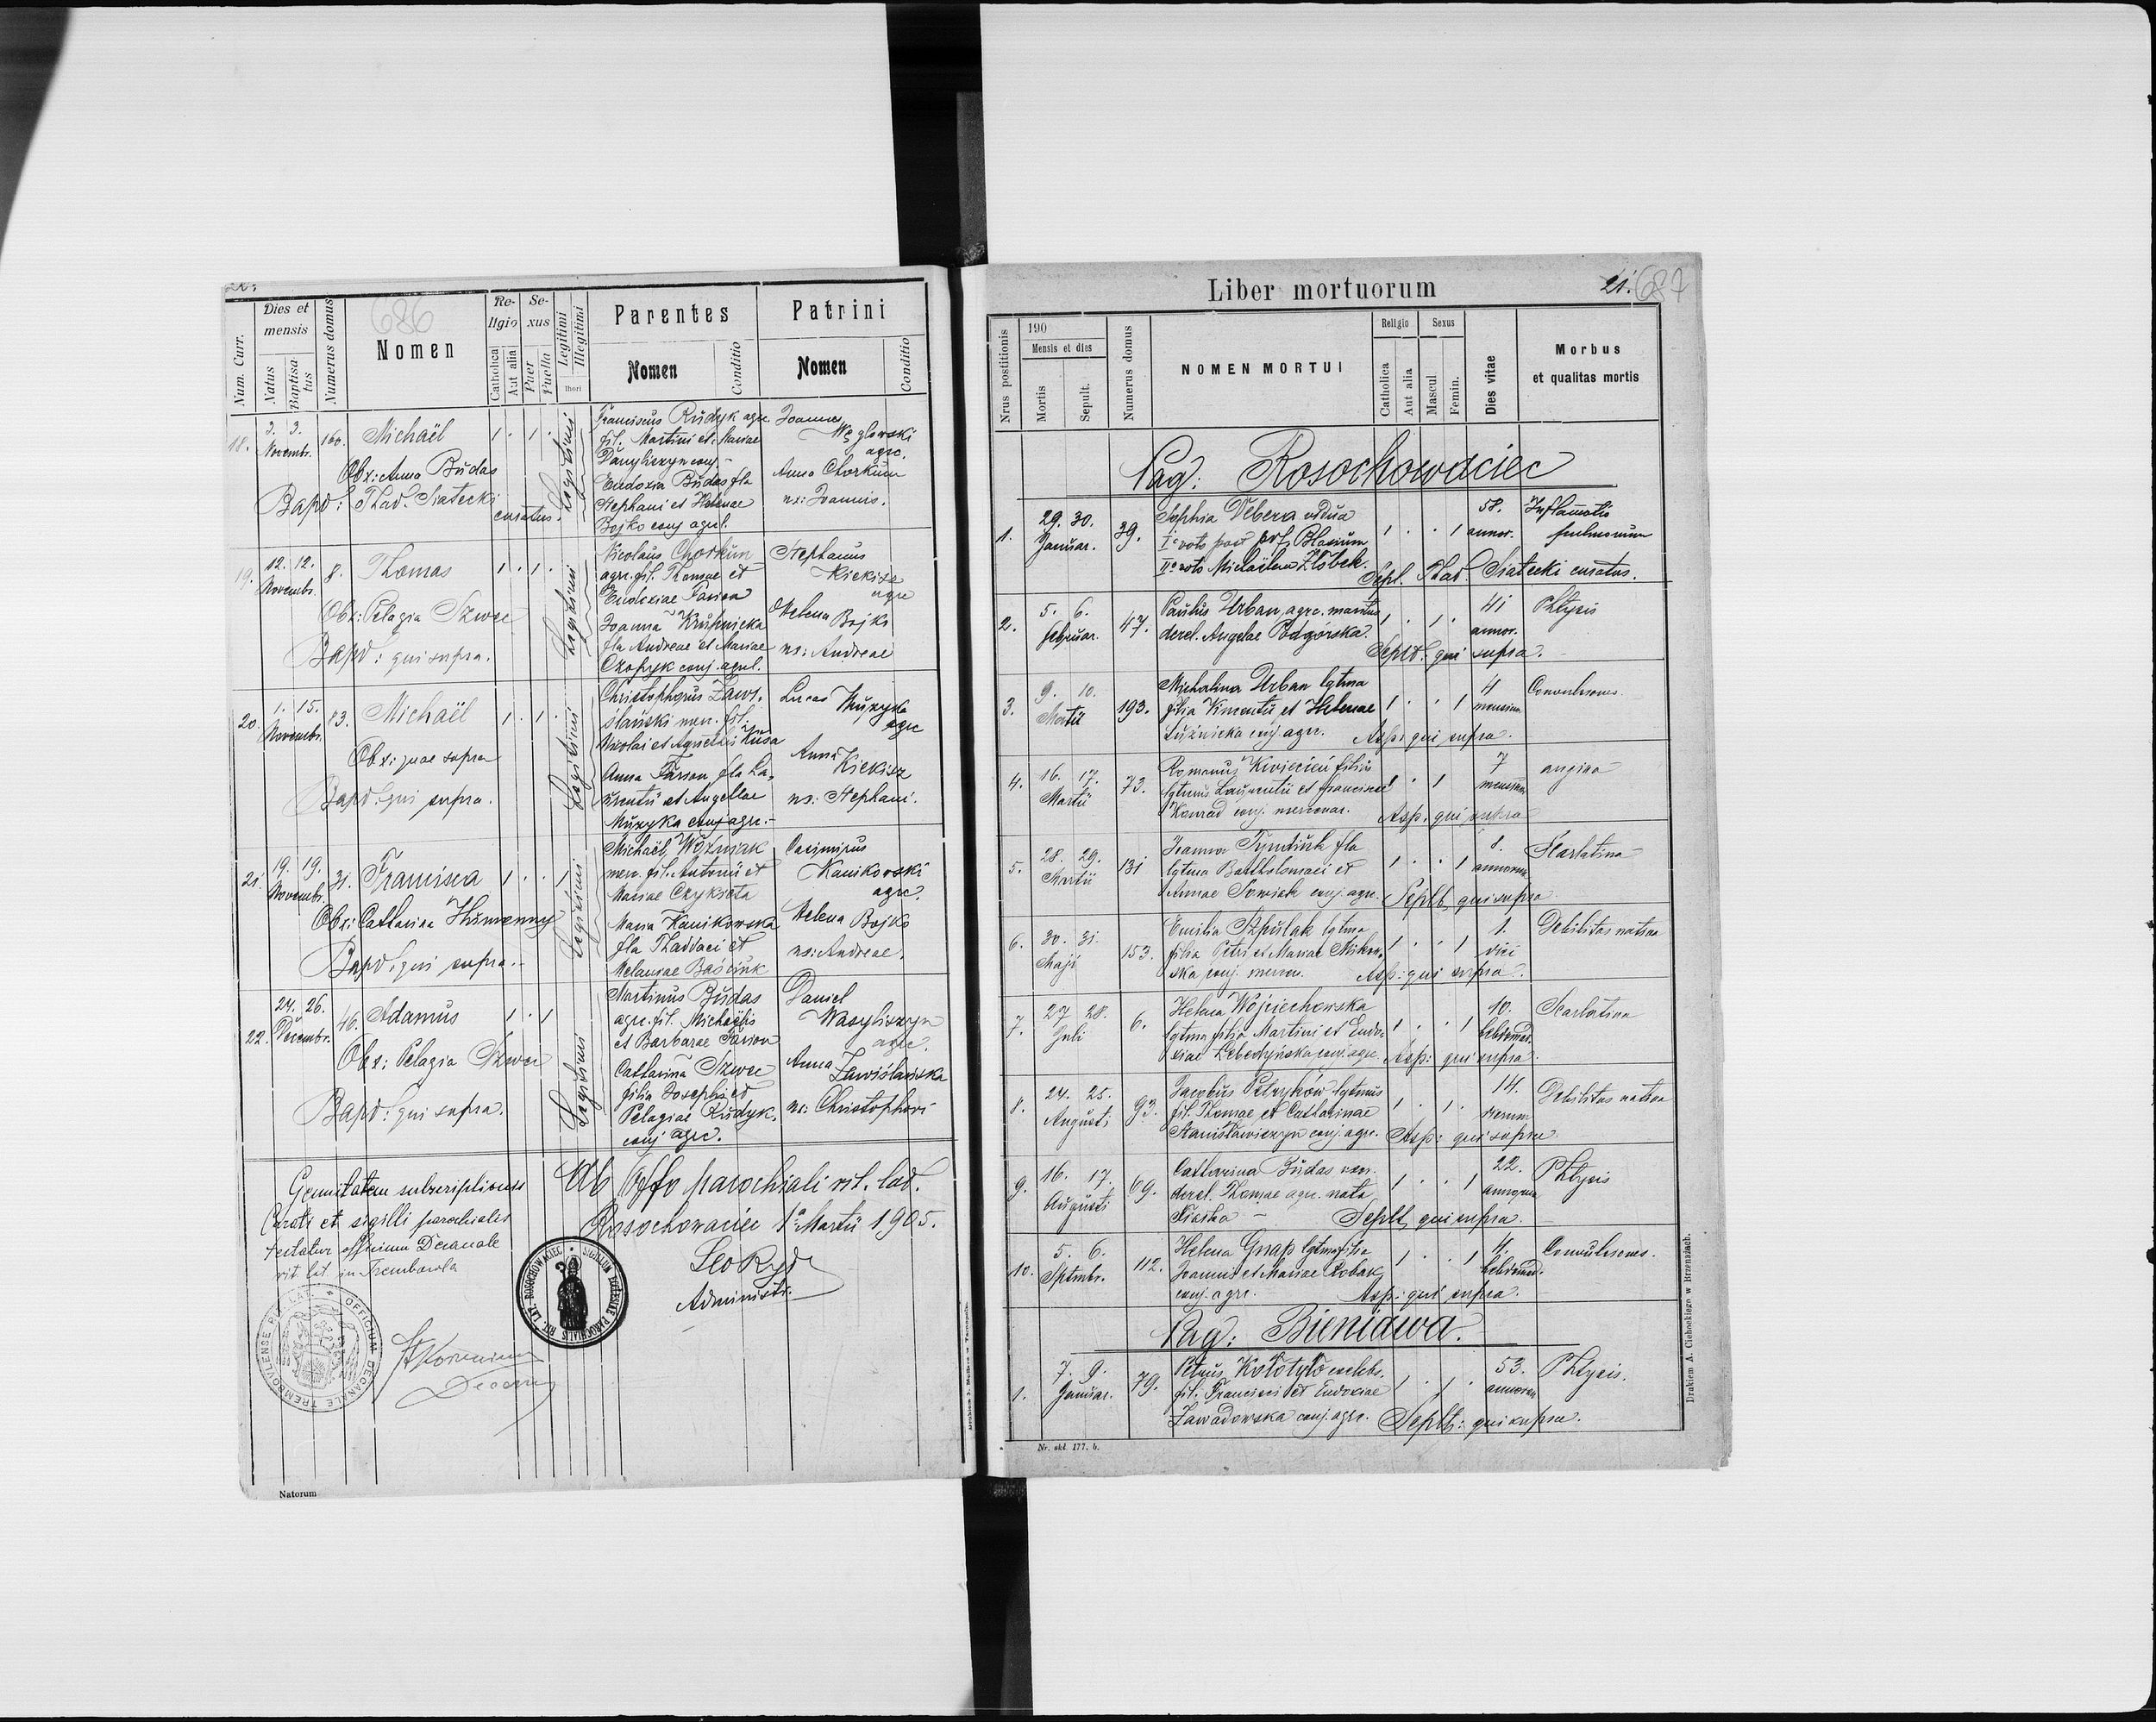 686
Num. Curr.
Dies et mensis
Natus
Baptisatus
Numerus domus
Nomen
Religio
Catholica
Aut alia
Sexus
Puer
Puella
Legitimi
Illegitimi
thori
Parentes
Nomen
Conditio
Patrini
Nomen
Conditio
18. 3. 3. Novembr. 160. Michaël 1 . 1 . Legitimi
Obx: Anna Budas
Bapt: Thad. Siatecki curatus.
Franciscus Rudyk agr.
fil. Martini et Mariae
Danyliszyn conj. -
Eudoxia Budas fla
Stephani et Helenae
Bojko conj agrl.
Joannes
Węglowski
agrc.
Anna Chorkun
ux: Joannis.
19. 12. 12. Novembr. 8. Thomas 1 . 1 . Legitimi
Obx: Pelagia Szwec
Bapt: qui supra.
Nicolaus Chorkun
agrc. fil. Thomae et
Eudoxiae Farion
Joanna Krupnicka
fla Andreae et Mariae
Czopyk conj. agrl.
Stephanus
Kiekisz
agrc
Helena Bojko
ux: Andreae
20. 1. 15. Novembr. 83. Michaël 1 . 1 . Legitimi
Obx: quae supra
Bapt: qui supra.
Christophorus Zawi-
slański mer. fil.
Nicolai et Agnetis Kusa
Anna Farion fla La-
urentii et Angellae
Muzyka conj agrc. -
Lucas Muzyka
agrc
Anna
Kiekisz
ux: Stephani.
21. 19. 19. Novembr. 31. Francisca 1 . . 1 Legitimi
Obx: Catharina Humenny
Bapt: qui supra. -
Michaël Woźniak
mer. fil. Antonii et
Mariae Czykieta
Maria Kanikowska
fla Thaddaei et
Melaniae Baściuk
Casimirus
Kanikowski
agrc.
Helena Bojko
ux: Andreae.
22. 24. 26. Decembr. 46. Adamus 1 . 1 Legitimi
Obx: Pelagia Szwec
Bapt: qui supra.
Martinus Budas
agrc. fil. Michaëlis
et Barbarae Farion
Catharina Szwec
filia Josephi et
Pelagiae Rudyk.
conj agrc.
Daniel
Wasyliszyn
agrc.
Anna
Zawislańska
ux: Christophori
Genuitatem subscriptionis
Curati et sigilli parochialis
testatur officium Decanale
rit. lat in Trembowla
Ab Offo parochiali rit. lat.
Rosochowaciec 1a Martii 1905.
Leo Ryd
Administr.
SIGILLUM ECCLESIAE PAROCHIALIS RIT. LAT. ROSOCHOWACIEC
OFFICIUM DECANALE TREMBOVLENSE RIT. LAT.
Decanus
Natorum
Liber mortuorum
21. 687
Nrus postitionis
190
Mensis et dies
Mortis
Sepult.
Numerus domus
NOMEN MORTUI
Religio
Catholica
Aut alia
Sexus
Mascul
Femin.
Dies vitae
Morbus
et qualitas mortis
Pag: Rosochowaciec
1. 29. 30. Januar. 39. Sophia Webera vidua
Io voto post Blasium
IIo voto Michaëlem Żłobek.
1 . . 1 58. annor. Inflamatio pulmonum
Sepl. Thad. Siatecki curatus.
2. 5. 6. Februar. 47. Paulus Urban agrc. maritus
derel. Angelae Podgórska.
1 . 1 . 41 annor. Phtysis
Seplt. qui supra.
3. 9. 10. Martii 193. Michalina Urban lgtma
filia Vincentii et Helenae
Łuźnicka conj. agrc.
1 . . 1 4 mensium Convulsiones.
Asp: qui supra.
4. 16. 17. Martii 73. Romanus Kwiecień filius
lgtmus Laurentii et Franciscae
Konrad conj. mercenar.
1 . 1 7 mensium angina
Asp. qui supra
5. 28. 29. Martii 131 Joanna Tymciuk fla
lgtma Bartholomaei et
Annae Sowiak conj. agrc.
1 . . 1 8. annorum Skarlatina
Seplt. qui supra
6. 30. 31. Maji 153. Emilia Szpulak lgtma
filia Petri et Mariae
ska conj. mercen.
1 . . 1 1. diei Debilitas nativa
Asp: qui supra.
7. 27 28. Juli 6. Helena Wojciechowska
lgtma filia Martini et Eudo-
xiae Lebedyńska conj. agrc.
1 . . 1 10. hebdomad. Scarlatina
Asp: qui supra.
8. 24. 25. Augusti 93. Jacobus Petryków lgtmus
fil. Thomae et Catharinae
Stanisławiszyn conj. agrc.
1 . 1 . 14. dierum Debilitas nativa
Asp: qui supra
9. 16. 17. Augusti 69. Catharina Budas uxor.
derel. Thomae agrc. nata
Siasta -
1 . . 1 22. annorum Phtysis
Seplt. qui supra.
10. 5. 6. Septmbr. 112. Helena Gnap lgtma filia
Joannis et Mariae Robak
conj. agrc.
1 . . 1 4. hebdomad. Convulsiones.
Asp: qui supra.
Pag: Bieniawa.
1. 7. 9. Januar. 79. Petrus Kołotyło caelebs.
fil. Francisci et Eudoxiae
Zawadowska conj. agrc.
1 . 1 . 53. annorum Phtysis.
Seplt: qui supra.
Nr. skł. 177. b.
Drukiem A. Cichockiego w Brzeżanach.